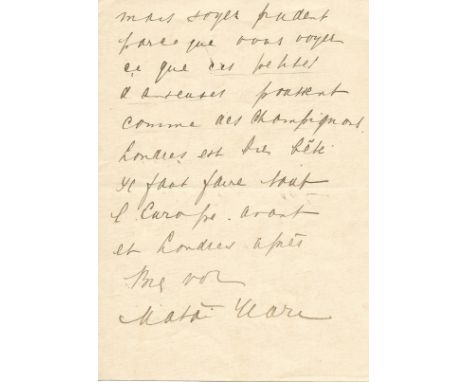 mais soyez prudent
parceque vous voyez
ce que ces petites
danseuses poussent
comme des champignons.
Londres est très bête
Il faut faire tout
l'Europe avant
et Londres après
Bien vôtre
Mata Hari